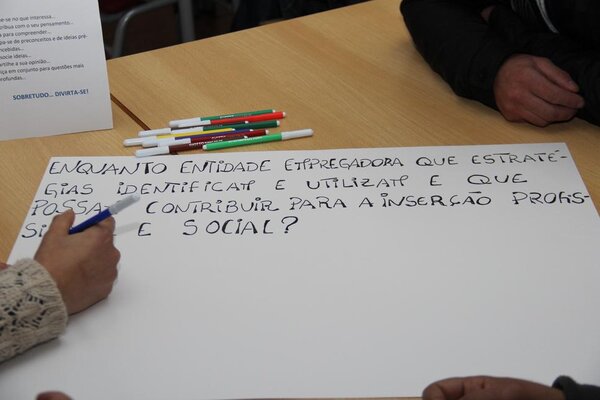 se no que interessa...
ntribua com o seu pensamento...
para compreender...
pa-se de preconceitos e de ideias pré-
cebidas...
socie ideias...
artilhe a sua opinião...
aça em conjunto para questões mais
rofundas...
SOBRETUDO... DIVIRTA-SE!
ENQUANTO ENTIDADE EMPREGADORA QUE ESTRATÉ-
GIAS IDENTIFICAM E UTILIZAM E QUE
POSSA CONTRIBUIR PARA A INSERÇÃO PROFIS-
SI E SOCIAL?